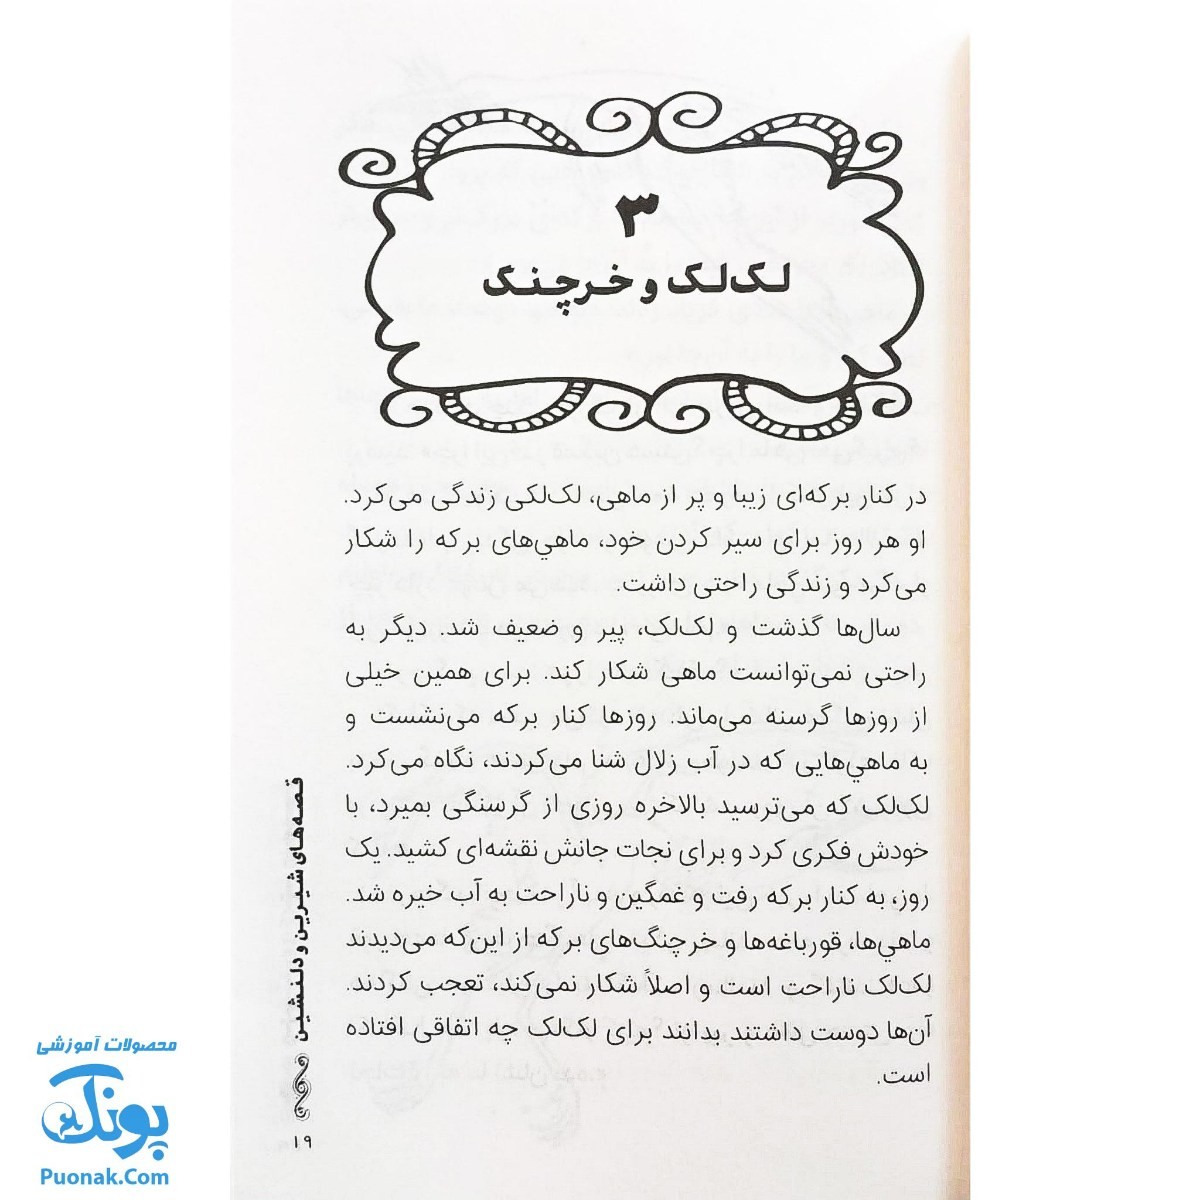 ۳
لک‌لک و خرچنگ
در کنار برکه‌ای زیبا و پر از ماهی، لک‌لکی زندگی می‌کرد.
او هر روز برای سیر کردن خود، ماهي‌های برکه را شکار
می‌کرد و زندگی راحتی داشت.
سال‌ها گذشت و لک‌لک، پیر و ضعیف شد. دیگر به
راحتی نمی‌توانست ماهی شکار کند. برای همین خیلی
از روزها گرسنه می‌ماند. روزها کنار برکه می‌نشست و
به ماهي‌هایی که در آب زلال شنا می‌کردند، نگاه می‌کرد.
لک‌لک که می‌ترسید بالاخره روزی از گرسنگی بمیرد، با
خودش فکری کرد و برای نجات جانش نقشه‌ای کشید. یک
روز، به کنار برکه رفت و غمگین و ناراحت به آب خیره شد.
ماهي‌ها، قورباغه‌ها و خرچنگ‌های برکه از این‌که می‌دیدند
لک‌لک ناراحت است و اصلاً شکار نمی‌کند، تعجب کردند.
آن‌ها دوست داشتند بدانند برای لک‌لک چه اتفاقی افتاده
است.
قصه‌های شیرین و دلنشین
۱۹
محصولات آموزشی
پونک
Puonak.Com